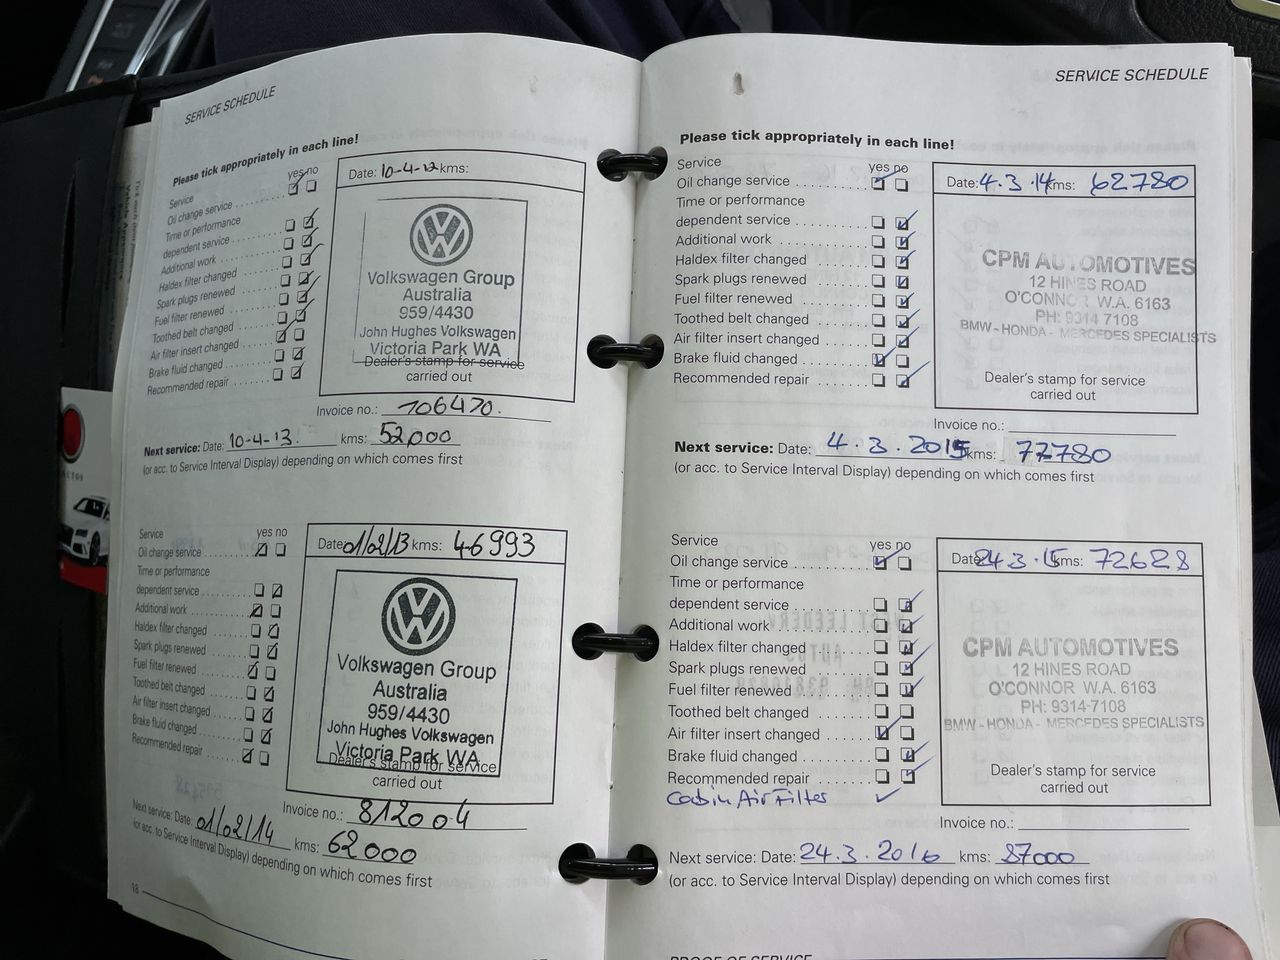 SERVICE SCHEDULE
Please tick appropriately in each line!
yes no
Service
Oil change service
Time or performance
dependent service
Additional work
Haldex filter changed
Spark plugs renewed
Fuel filter renewed
Toothed belt changed
Air filter insert changed
Brake fluid changed
Recommended repair
Date: 10-4-12 kms:
Volkswagen Group
Australia
959/4430
John Hughes Volkswagen
Victoria Park WA
Dealer's stamp for service
carried out
Invoice no.: 706470.
Next service: Date: 10-4-13. kms: 52,000
(or acc. to Service Interval Display) depending on which comes first
Service
yes no
Oil change service
Time or performance
dependent service
Additional work
Haldex filter changed
Spark plugs renewed
Fuel filter renewed
Toothed belt changed
Air filter insert changed
Brake fluid changed
Recommended repair
Date: 01/02/13 kms: 46993
Volkswagen Group
Australia
959/4430
John Hughes Volkswagen
Victoria Park WA
Dealer's stamp for service
carried out
Invoice no.: 812004
Next service: Date: 01/02/14 kms: 62000
(or acc. to Service Interval Display) depending on which comes first
18
SERVICE SCHEDULE
Please tick appropriately in each line!
Service
yes no
Oil change service
Time or performance
dependent service
Additional work
Haldex filter changed
Spark plugs renewed
Fuel filter renewed
Toothed belt changed
Air filter insert changed
Brake fluid changed
Recommended repair
Date: 4.3.14 kms: 62780
CPM AUTOMOTIVES
12 HINES ROAD
O'CONNOR W.A. 6163
PH: 9314 7108
BMW - HONDA - MERCEDES SPECIALISTS
Dealer's stamp for service
carried out
Invoice no.:
Next service: Date: 4.3.2015 kms: 77780
(or acc. to Service Interval Display) depending on which comes first
Service
yes no
Oil change service
Time or performance
dependent service
Additional work
Haldex filter changed
Spark plugs renewed
Fuel filter renewed
Toothed belt changed
Air filter insert changed
Brake fluid changed
Recommended repair
Cabin Air Filter
Date: 24.3.15 kms: 72628
CPM AUTOMOTIVES
12 HINES ROAD
O'CONNOR W.A. 6163
PH: 9314-7108
BMW - HONDA - MERCEDES SPECIALISTS
Dealer's stamp for service
carried out
Invoice no.:
Next service: Date: 24.3.2016 kms: 87000
(or acc. to Service Interval Display) depending on which comes first
PROOF OF SERVICE